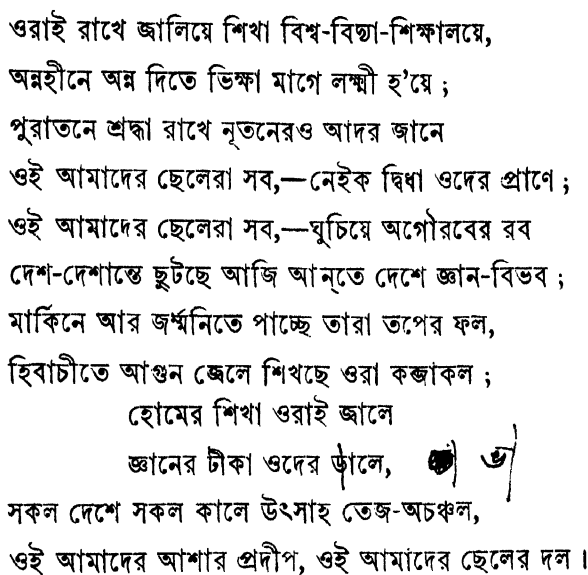 ওরাই রাখে জ্বালিয়ে শিখা বিশ্ব-বিদ্যা-শিক্ষালয়ে,
অন্নহীনে অন্ন দিতে ভিক্ষা মাগে লক্ষ্মী হ'য়ে ;
পুরাতনে শ্রদ্ধা রাখে নূতনেরও আদর জানে
ওই আমাদের ছেলেরা সব,—নেইক দ্বিধা ওদের প্রাণে ;
ওই আমাদের ছেলেরা সব,—ঘুচিয়ে অগৌরবের রব
দেশ-দেশান্তে ছুটছে আজি আন্‌তে দেশে জ্ঞান-বিভব ;
মার্কিনে আর জর্ম্মনিতে পাচ্ছে তারা তপের ফল,
হিবাচীতে আগুন জ্বেলে শিখছে ওরা কব্জাকল ;
হোমের শিখা ওরাই জ্বালে
জ্ঞানের টীকা ওদের ডালে, ভ
সকল দেশে সকল কালে উৎসাহ তেজ-অচঞ্চল,
ওই আমাদের আশার প্রদীপ, ওই আমাদের ছেলের দল ।